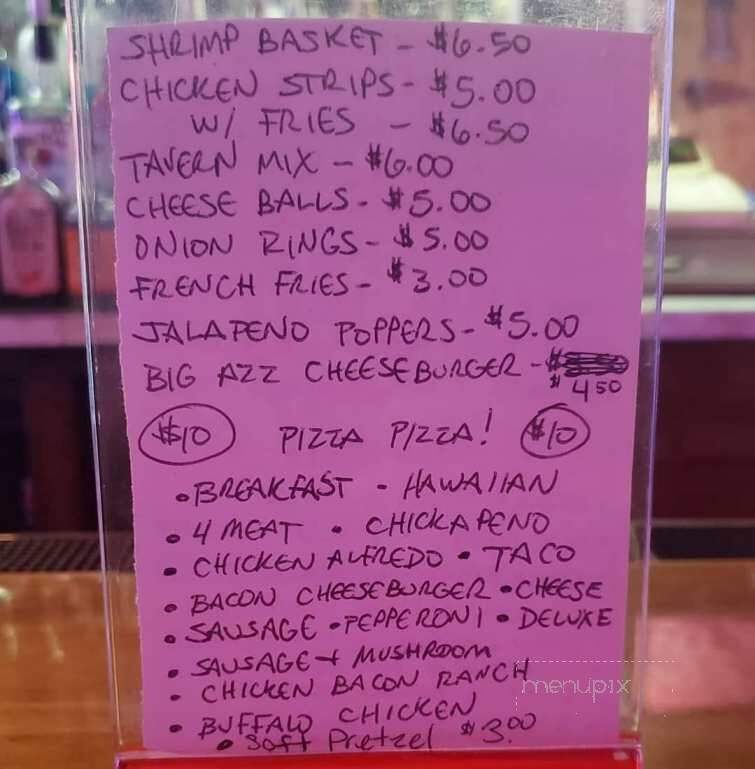 SHRIMP BASKET - $6.50
CHICKEN STRIPS - $5.00
W/ FRIES - $6.50
TAVERN MIX - $6.00
CHEESE BALLS - $5.00
ONION RINGS - $5.00
FRENCH FRIES - $3.00
JALAPENO POPPERS - $5.00
BIG AZZ CHEESEBURGER - $
$4.50
$10 PIZZA PIZZA! $10
• BREAKFAST • HAWAIIAN
• 4 MEAT • CHICKAPENO
• CHICKEN ALFREDO • TACO
• BACON CHEESEBURGER • CHEESE
• SAUSAGE • PEPPERONI • DELUXE
• SAUSAGE + MUSHROOM
• CHICKEN BACON RANCH
menupix
• BUFFALO CHICKEN
• Soft Pretzel $3.00